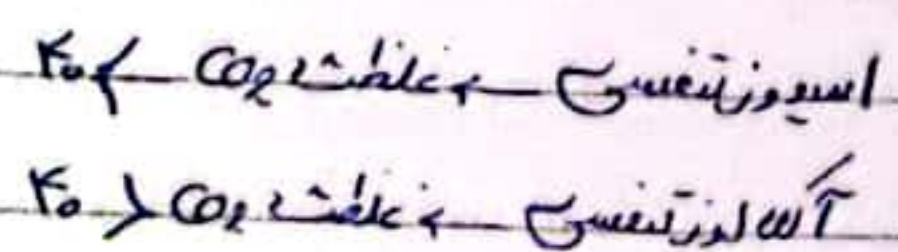 اسیدوز تنفسی ← غلظت CO2 > ۴۰
آلکالوز تنفسی ← غلظت CO2 < ۴۰